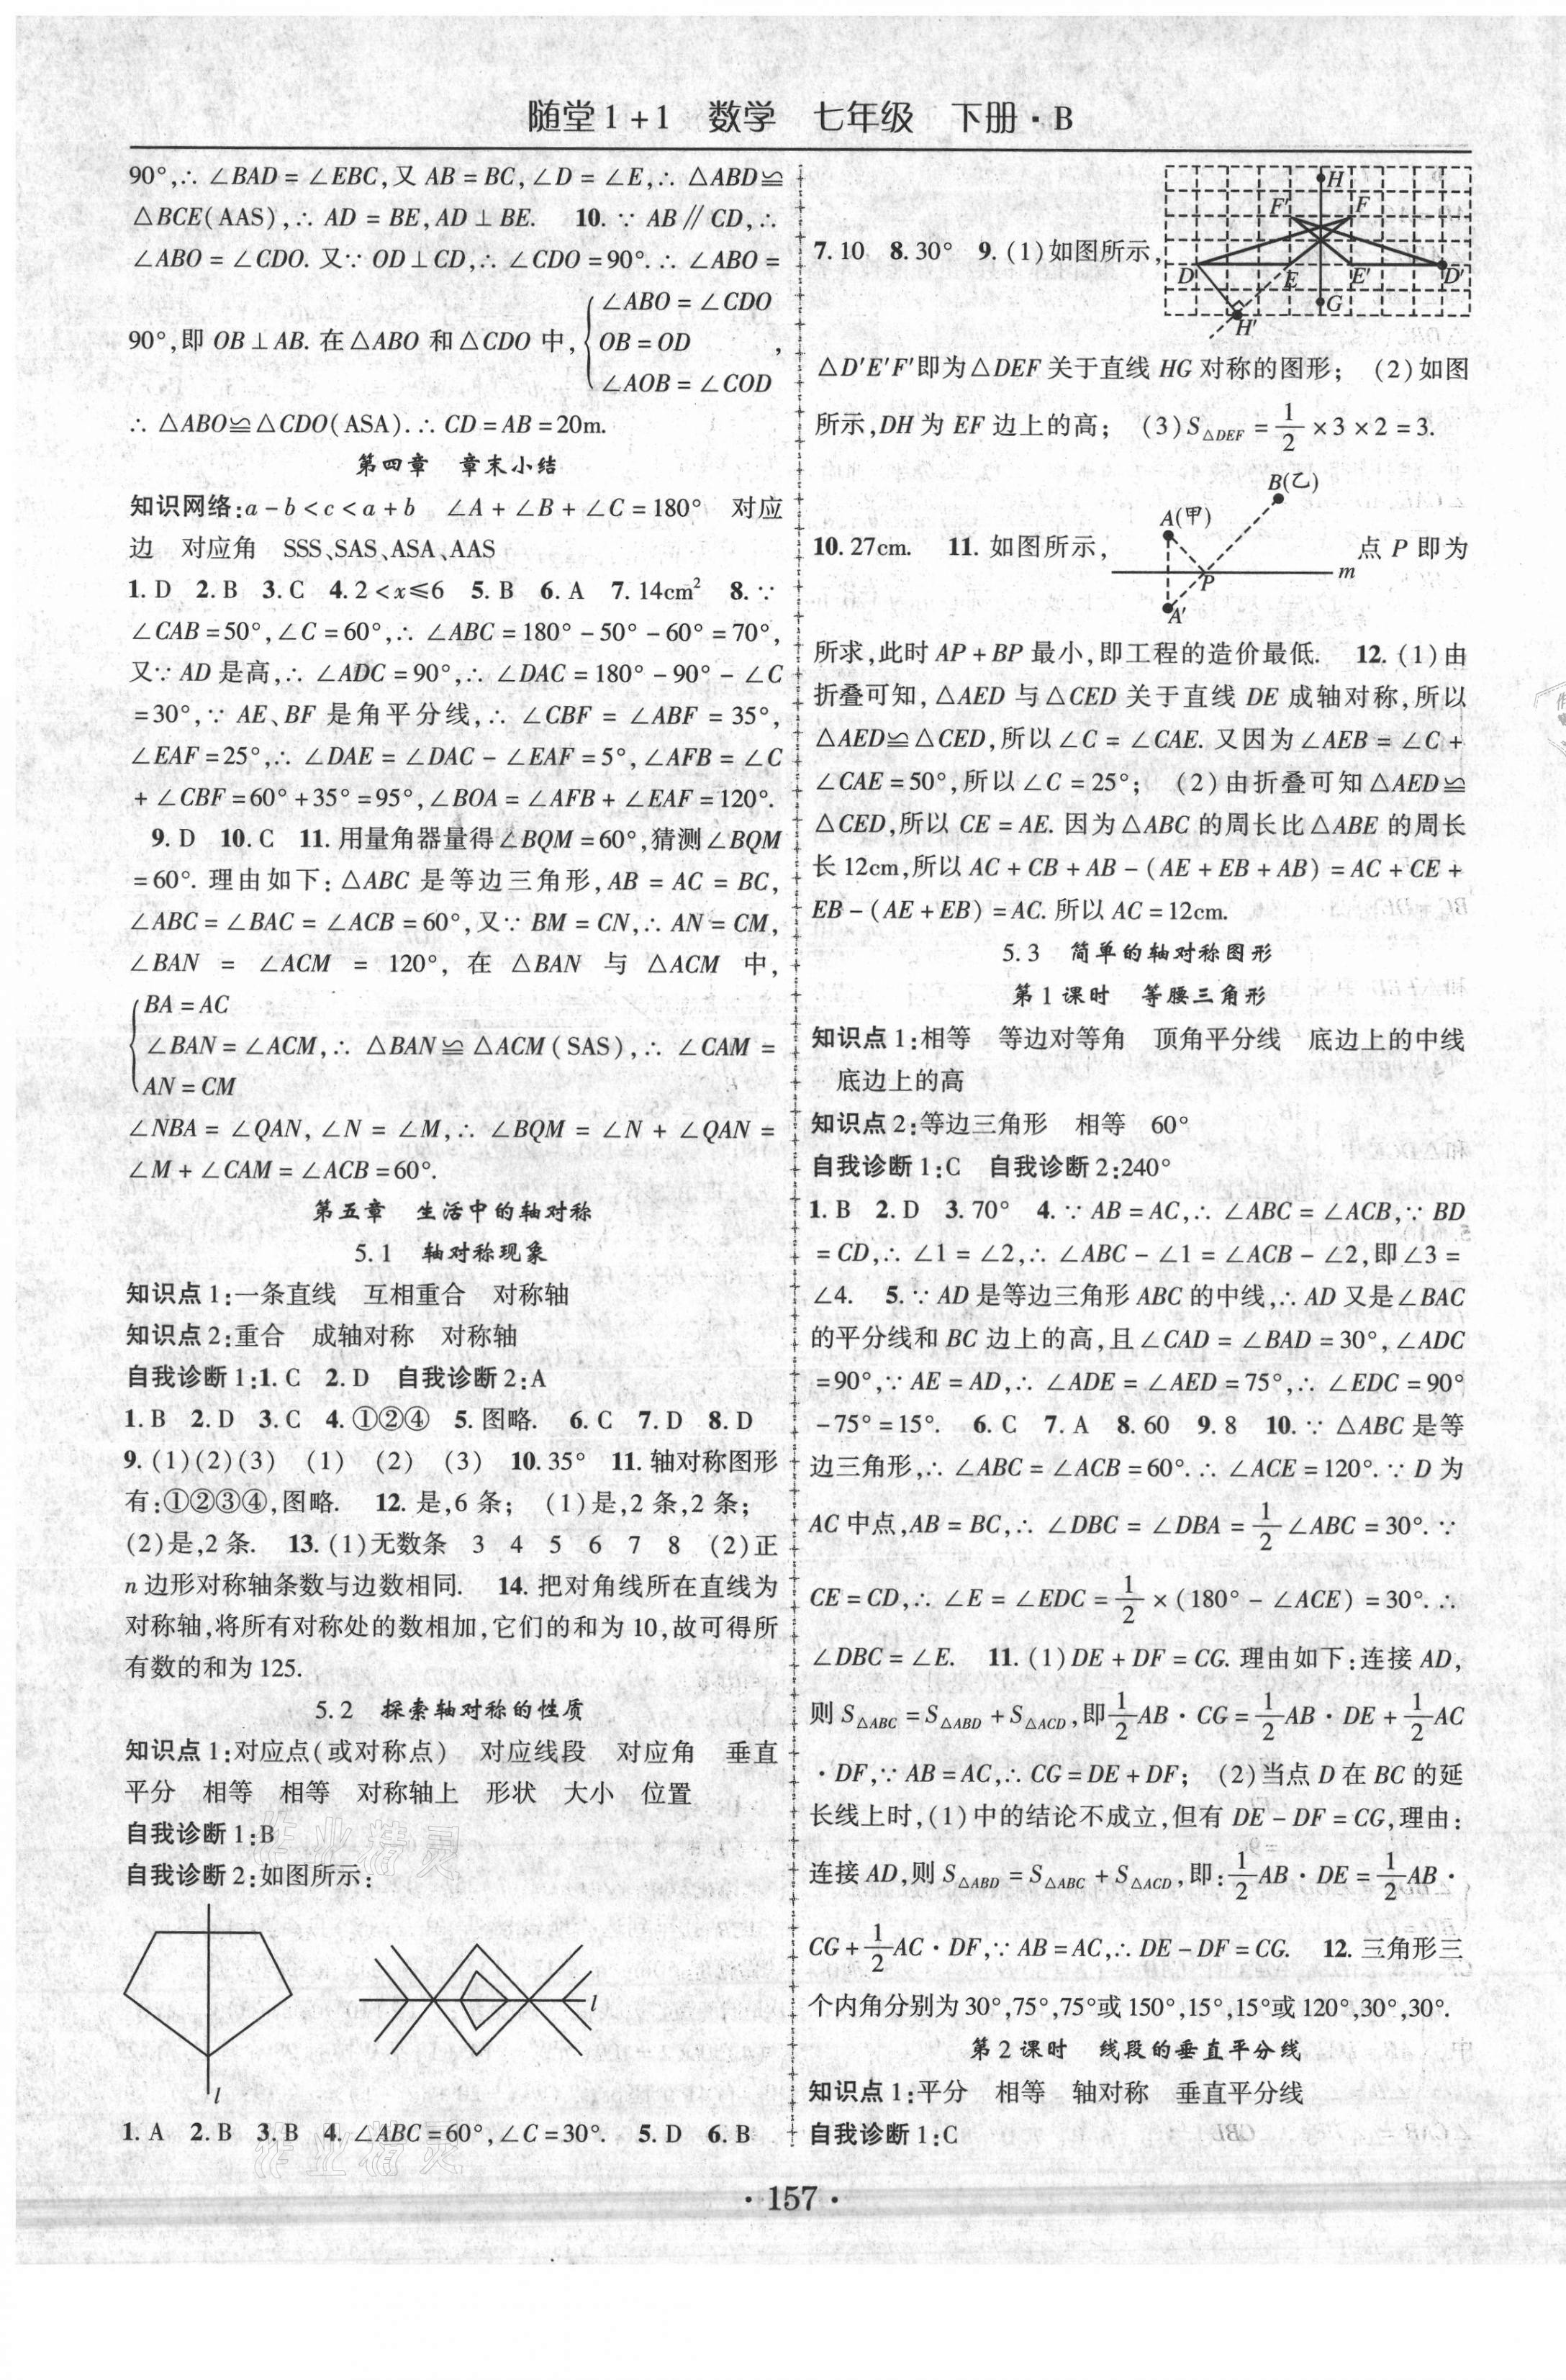 随堂1+1 数学 七年级 下册·B
90°,∴ ∠BAD = ∠EBC,又 AB = BC,∠D = ∠E,∴ △ABD≌
△BCE(AAS),∴ AD = BE,AD⊥BE. 10. ∵ AB∥CD,∴
∠ABO = ∠CDO. 又∵ OD⊥CD,∴ ∠CDO = 90°. ∴ ∠ABO =
∠ABO = ∠CDO
90°,即 OB⊥AB. 在△ABO 和△CDO 中,{OB = OD ,
∠AOB = ∠COD
∴ △ABO≌△CDO(ASA). ∴ CD = AB = 20m.
第四章 章末小结
知识网络:a - b < c < a + b ∠A + ∠B + ∠C = 180° 对应
边 对应角 SSS、SAS、ASA、AAS
1. D 2. B 3. C 4. 2 < x ≤ 6 5. B 6. A 7. 14cm² 8. ∵
∠CAB = 50°,∠C = 60°,∴ ∠ABC = 180° - 50° - 60° = 70°,
又∵ AD 是高,∴ ∠ADC = 90°,∴ ∠DAC = 180° - 90° - ∠C
= 30°,∵ AE、BF 是角平分线,∴ ∠CBF = ∠ABF = 35°,
∠EAF = 25°,∴ ∠DAE = ∠DAC - ∠EAF = 5°,∠AFB = ∠C
+ ∠CBF = 60° + 35° = 95°,∠BOA = ∠AFB + ∠EAF = 120°.
9. D 10. C 11. 用量角器量得∠BQM = 60°,猜测∠BQM
= 60°. 理由如下:△ABC 是等边三角形,AB = AC = BC,
∠ABC = ∠BAC = ∠ACB = 60°,又∵ BM = CN,∴ AN = CM,
∠BAN = ∠ACM = 120°,在 △BAN 与 △ACM 中,
BA = AC
{∠BAN = ∠ACM,∴ △BAN≌△ACM(SAS),∴ ∠CAM =
AN = CM
∠NBA = ∠QAN,∠N = ∠M,∴ ∠BQM = ∠N + ∠QAN =
∠M + ∠CAM = ∠ACB = 60°.
第五章 生活中的轴对称
5.1 轴对称现象
知识点1:一条直线 互相重合 对称轴
知识点2:重合 成轴对称 对称轴
自我诊断1:1. C 2. D 自我诊断2:A
1. B 2. D 3. C 4. ①②④ 5. 图略. 6. C 7. D 8. D
9. (1)(2)(3) (1) (2) (3) 10. 35° 11. 轴对称图形
有:①②③④,图略. 12. 是,6 条; (1)是,2 条,2 条;
(2)是,2 条. 13. (1)无数条 3 4 5 6 7 8 (2)正
n 边形对称轴条数与边数相同. 14. 把对角线所在直线为
对称轴,将所有对称处的数相加,它们的和为10,故可得所
有数的和为125.
5.2 探索轴对称的性质
知识点1:对应点(或对称点) 对应线段 对应角 垂直
平分 相等 相等 对称轴上 形状 大小 位置
自我诊断1:B
自我诊断2:如图所示:
l
l
1. A 2. B 3. B 4. ∠ABC = 60°,∠C = 30°. 5. D 6. B
H
F′ F
7. 10 8. 30° 9. (1)如图所示,
D E E′ D′
G
H′
△D′E′F′即为△DEF 关于直线 HG 对称的图形; (2)如图
所示,DH 为 EF 边上的高; (3)S△DEF = 1/2 × 3 × 2 = 3.
B(乙)
A(甲)
10. 27cm. 11. 如图所示, 点 P 即为
P m
A′
所求,此时 AP + BP 最小,即工程的造价最低. 12. (1)由
折叠可知,△AED 与△CED 关于直线 DE 成轴对称,所以
△AED≌△CED,所以∠C = ∠CAE. 又因为∠AEB = ∠C +
∠CAE = 50°,所以∠C = 25°; (2)由折叠可知△AED≌
△CED,所以 CE = AE. 因为△ABC 的周长比△ABE 的周长
长12cm,所以 AC + CB + AB - (AE + EB + AB) = AC + CE +
EB - (AE + EB) = AC. 所以 AC = 12cm.
5.3 简单的轴对称图形
第1课时 等腰三角形
知识点1:相等 等边对等角 顶角平分线 底边上的中线
底边上的高
知识点2:等边三角形 相等 60°
自我诊断1:C 自我诊断2:240°
1. B 2. D 3. 70° 4. ∵ AB = AC,∴ ∠ABC = ∠ACB,∵ BD
= CD,∴ ∠1 = ∠2,∴ ∠ABC - ∠1 = ∠ACB - ∠2,即∠3 =
∠4. 5. ∵ AD 是等边三角形 ABC 的中线,∴ AD 又是∠BAC
的平分线和 BC 边上的高,且∠CAD = ∠BAD = 30°,∠ADC
= 90°,∵ AE = AD,∴ ∠ADE = ∠AED = 75°,∴ ∠EDC = 90°
- 75° = 15°. 6. C 7. A 8. 60 9. 8 10. ∵ △ABC 是等
边三角形,∴ ∠ABC = ∠ACB = 60°. ∴ ∠ACE = 120°. ∵ D 为
AC 中点,AB = BC,∴ ∠DBC = ∠DBA = 1/2 ∠ABC = 30°. ∵
CE = CD,∴ ∠E = ∠EDC = 1/2 × (180° - ∠ACE) = 30°. ∴
∠DBC = ∠E. 11. (1)DE + DF = CG. 理由如下:连接 AD,
则 S△ABC = S△ABD + S△ACD,即 1/2 AB · CG = 1/2 AB · DE + 1/2 AC
· DF,∵ AB = AC,∴ CG = DE + DF; (2)当点 D 在 BC 的延
长线上时,(1)中的结论不成立,但有 DE - DF = CG,理由:
连接 AD,则 S△ABD = S△ABC + S△ACD,即:1/2 AB · DE = 1/2 AB ·
CG + 1/2 AC · DF,∵ AB = AC,∴ DE - DF = CG. 12. 三角形三
个内角分别为30°,75°,75°或150°,15°,15°或120°,30°,30°.
第2课时 线段的垂直平分线
知识点1:平分 相等 轴对称 垂直平分线
自我诊断1:C
· 157 ·
作业精灵
作业精灵